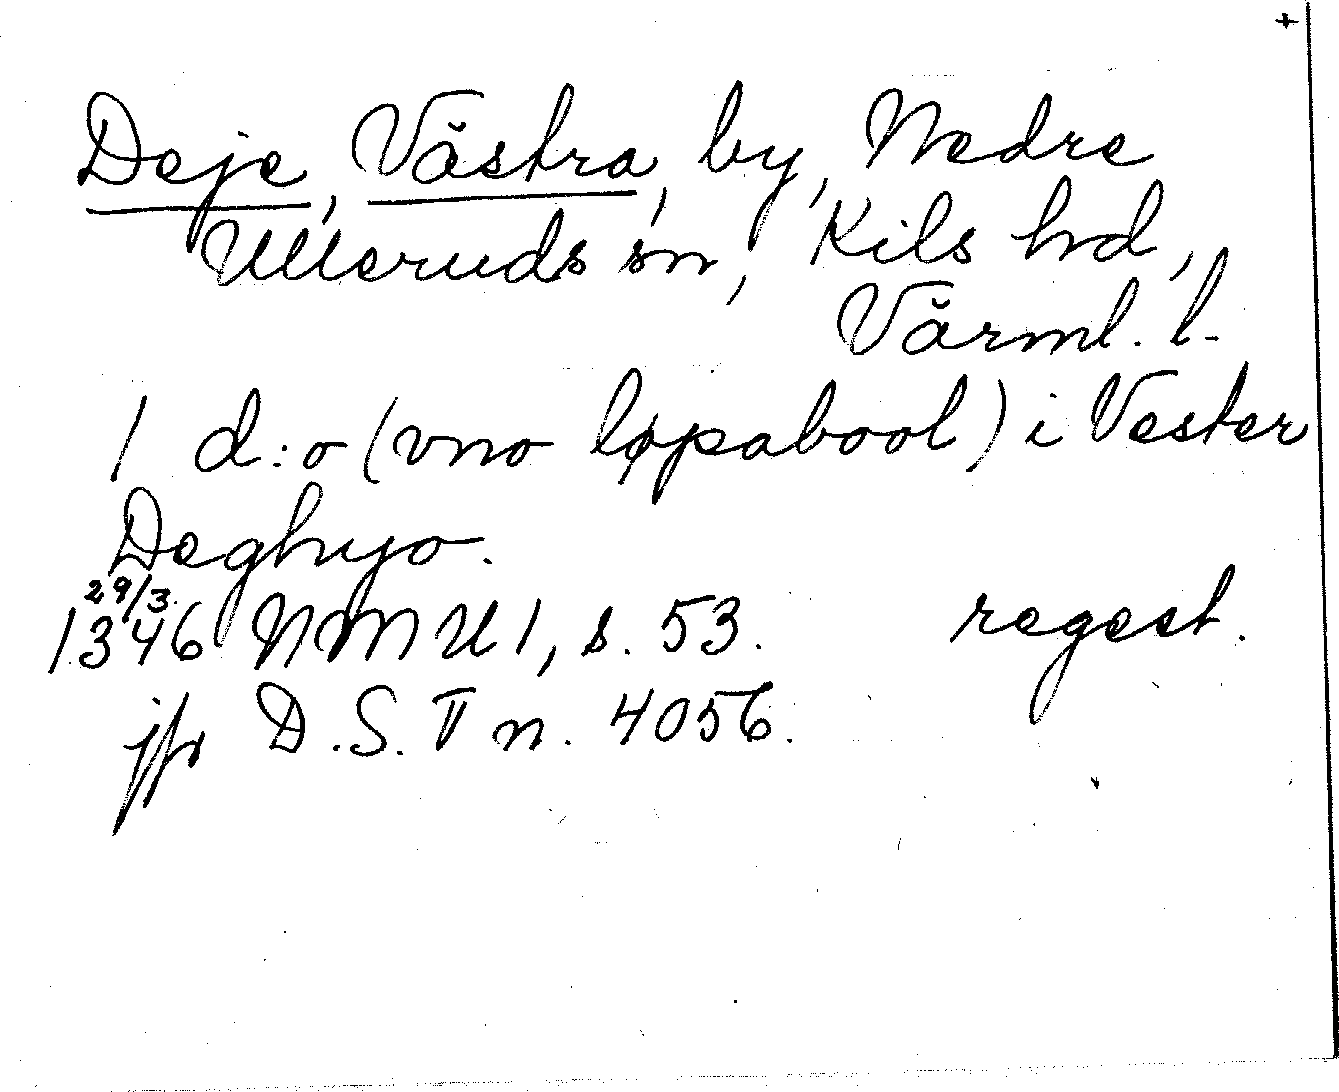 +
Deje, Västra, by, Nedre
Ulleruds sn, Kils hd,
Värml. l.
1 d:o (vno løpabool) i Vester
Deghyo.
29/3
1346 NMU 1, s. 53. regest.
jfr D.S. V n. 4056.